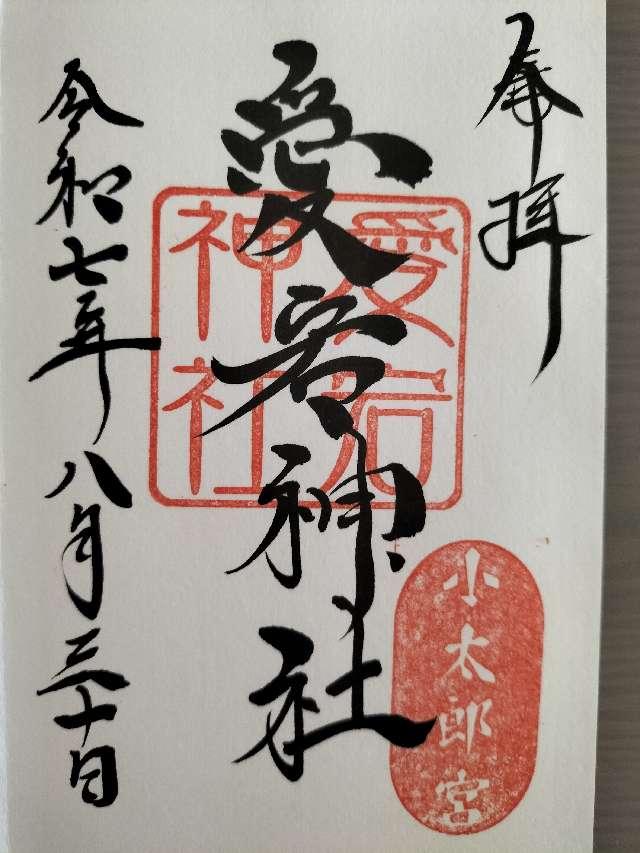 奉拝
小太郎宮
愛宕神社
愛宕
神社
令和七年八月三十日